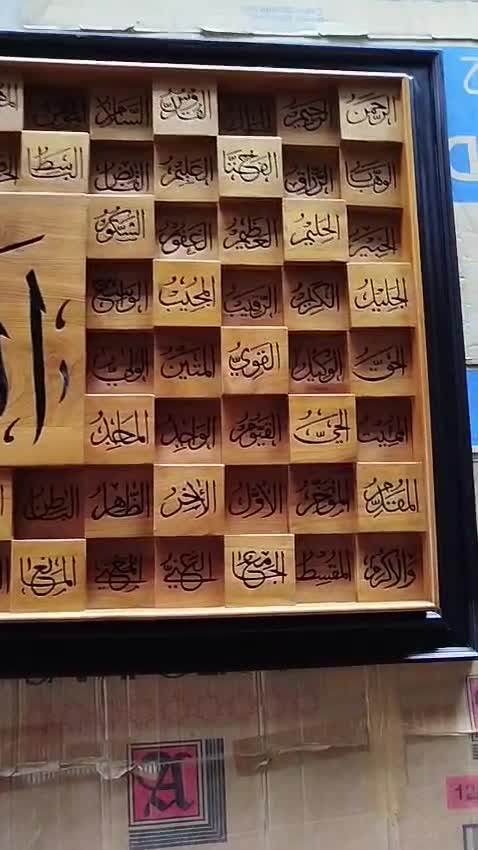 الرحمن الرحيم الملك القدوس السلام المؤمن
الوهاب الرزاق الفتاح العليم القابض الباسط
الخبير الحليم العظيم الغفور الشكور
الجليل الكريم الرقيب المجيب الواسع
الحق الوكيل القوي المتين الولي
المميت الحي القيوم الواجد الماجد
المقدم المؤخر الأول الآخر الظاهر الباطن
والاكرام المقسط الجامع الغني المغني المانع
A
12